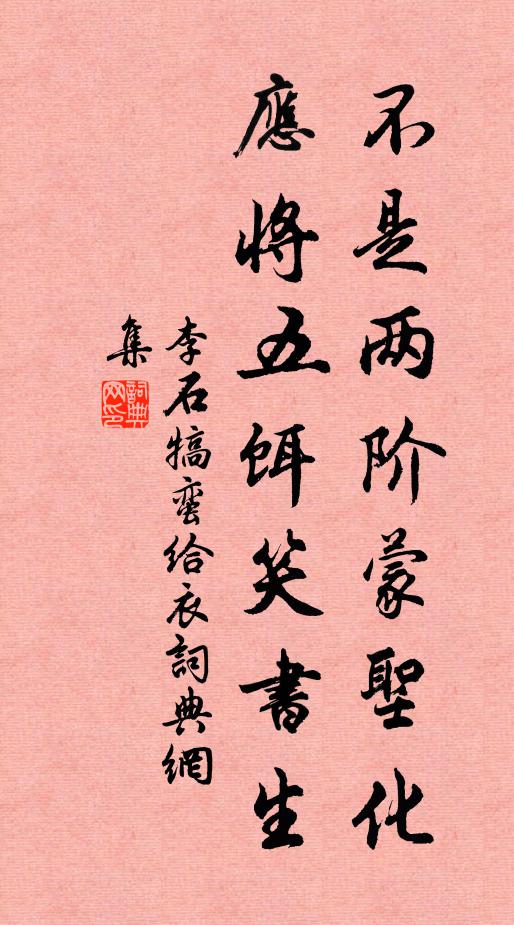 不是两阶蒙聖化
應将五饵笑書生
李石犒蛮给衣詞典網
集
詞典網印